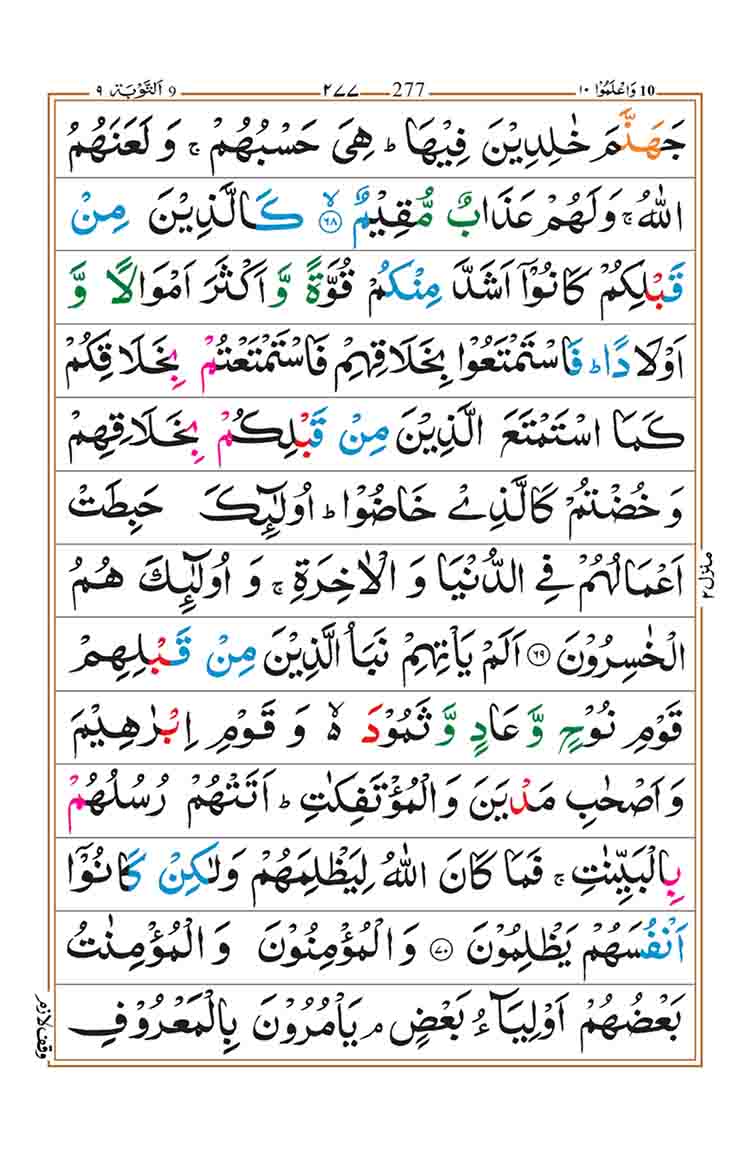 9 اَلتَّوْبَة ٩ ٢٧٧ 277 10 وَاعْلَمُوْٓا ١٠
جَهَنَّمَ خٰلِدِيْنَ فِيْهَا ؕ هِىَ حَسْبُهُمْ ۚ وَ لَعَنَهُمُ
اللّٰهُ ۚ وَلَهُمْ عَذَابٌ مُّقِيْمٌ ۙ‏ ﴿۶۸﴾ كَالَّذِيْنَ مِنْ
قَبْلِكُمْ كَانُوْۤا اَشَدَّ مِنْكُمْ قُوَّةً وَّ اَكْثَرَ اَمْوَالًا وَّ
اَوْلَادًا ؕ فَاسْتَمْتَعُوْا بِخَلَاقِهِمْ فَاسْتَمْتَعْتُمْ بِخَلَاقِكُمْ
كَمَا اسْتَمْتَعَ الَّذِيْنَ مِنْ قَبْلِكُمْ بِخَلَاقِهِمْ
وَ خُضْتُمْ كَالَّذِىْ خَاضُوْا ؕ اُولٰٓئِكَ حَبِطَتْ
اَعْمَالُهُمْ فِى الدُّنْيَا وَ الْاٰخِرَةِ ۚ وَ اُولٰٓئِكَ هُمُ
الْخٰسِرُوْنَ ﴿۶۹﴾ اَلَمْ يَاْتِهِمْ نَبَاُ الَّذِيْنَ مِنْ قَبْلِهِمْ
قَوْمِ نُوْحٍ وَّ عَادٍ وَّ ثَمُوْدَ ۙ۬ وَ قَوْمِ اِبْرٰهِيْمَ
وَ اَصْحٰبِ مَدْيَنَ وَ الْمُؤْتَفِكٰتِ ؕ اَتَتْهُمْ رُسُلُهُمْ
بِالْبَيِّنٰتِ ۚ فَمَا كَانَ اللّٰهُ لِيَظْلِمَهُمْ وَلٰكِنْ كَانُوْۤا
اَنْفُسَهُمْ يَظْلِمُوْنَ ﴿۷۰﴾ وَ الْمُؤْمِنُوْنَ وَ الْمُؤْمِنٰتُ
بَعْضُهُمْ اَوْلِيَآءُ بَعْضٍ ۘ يَاْمُرُوْنَ بِالْمَعْرُوْفِ
منزل ٢
وقف لازم